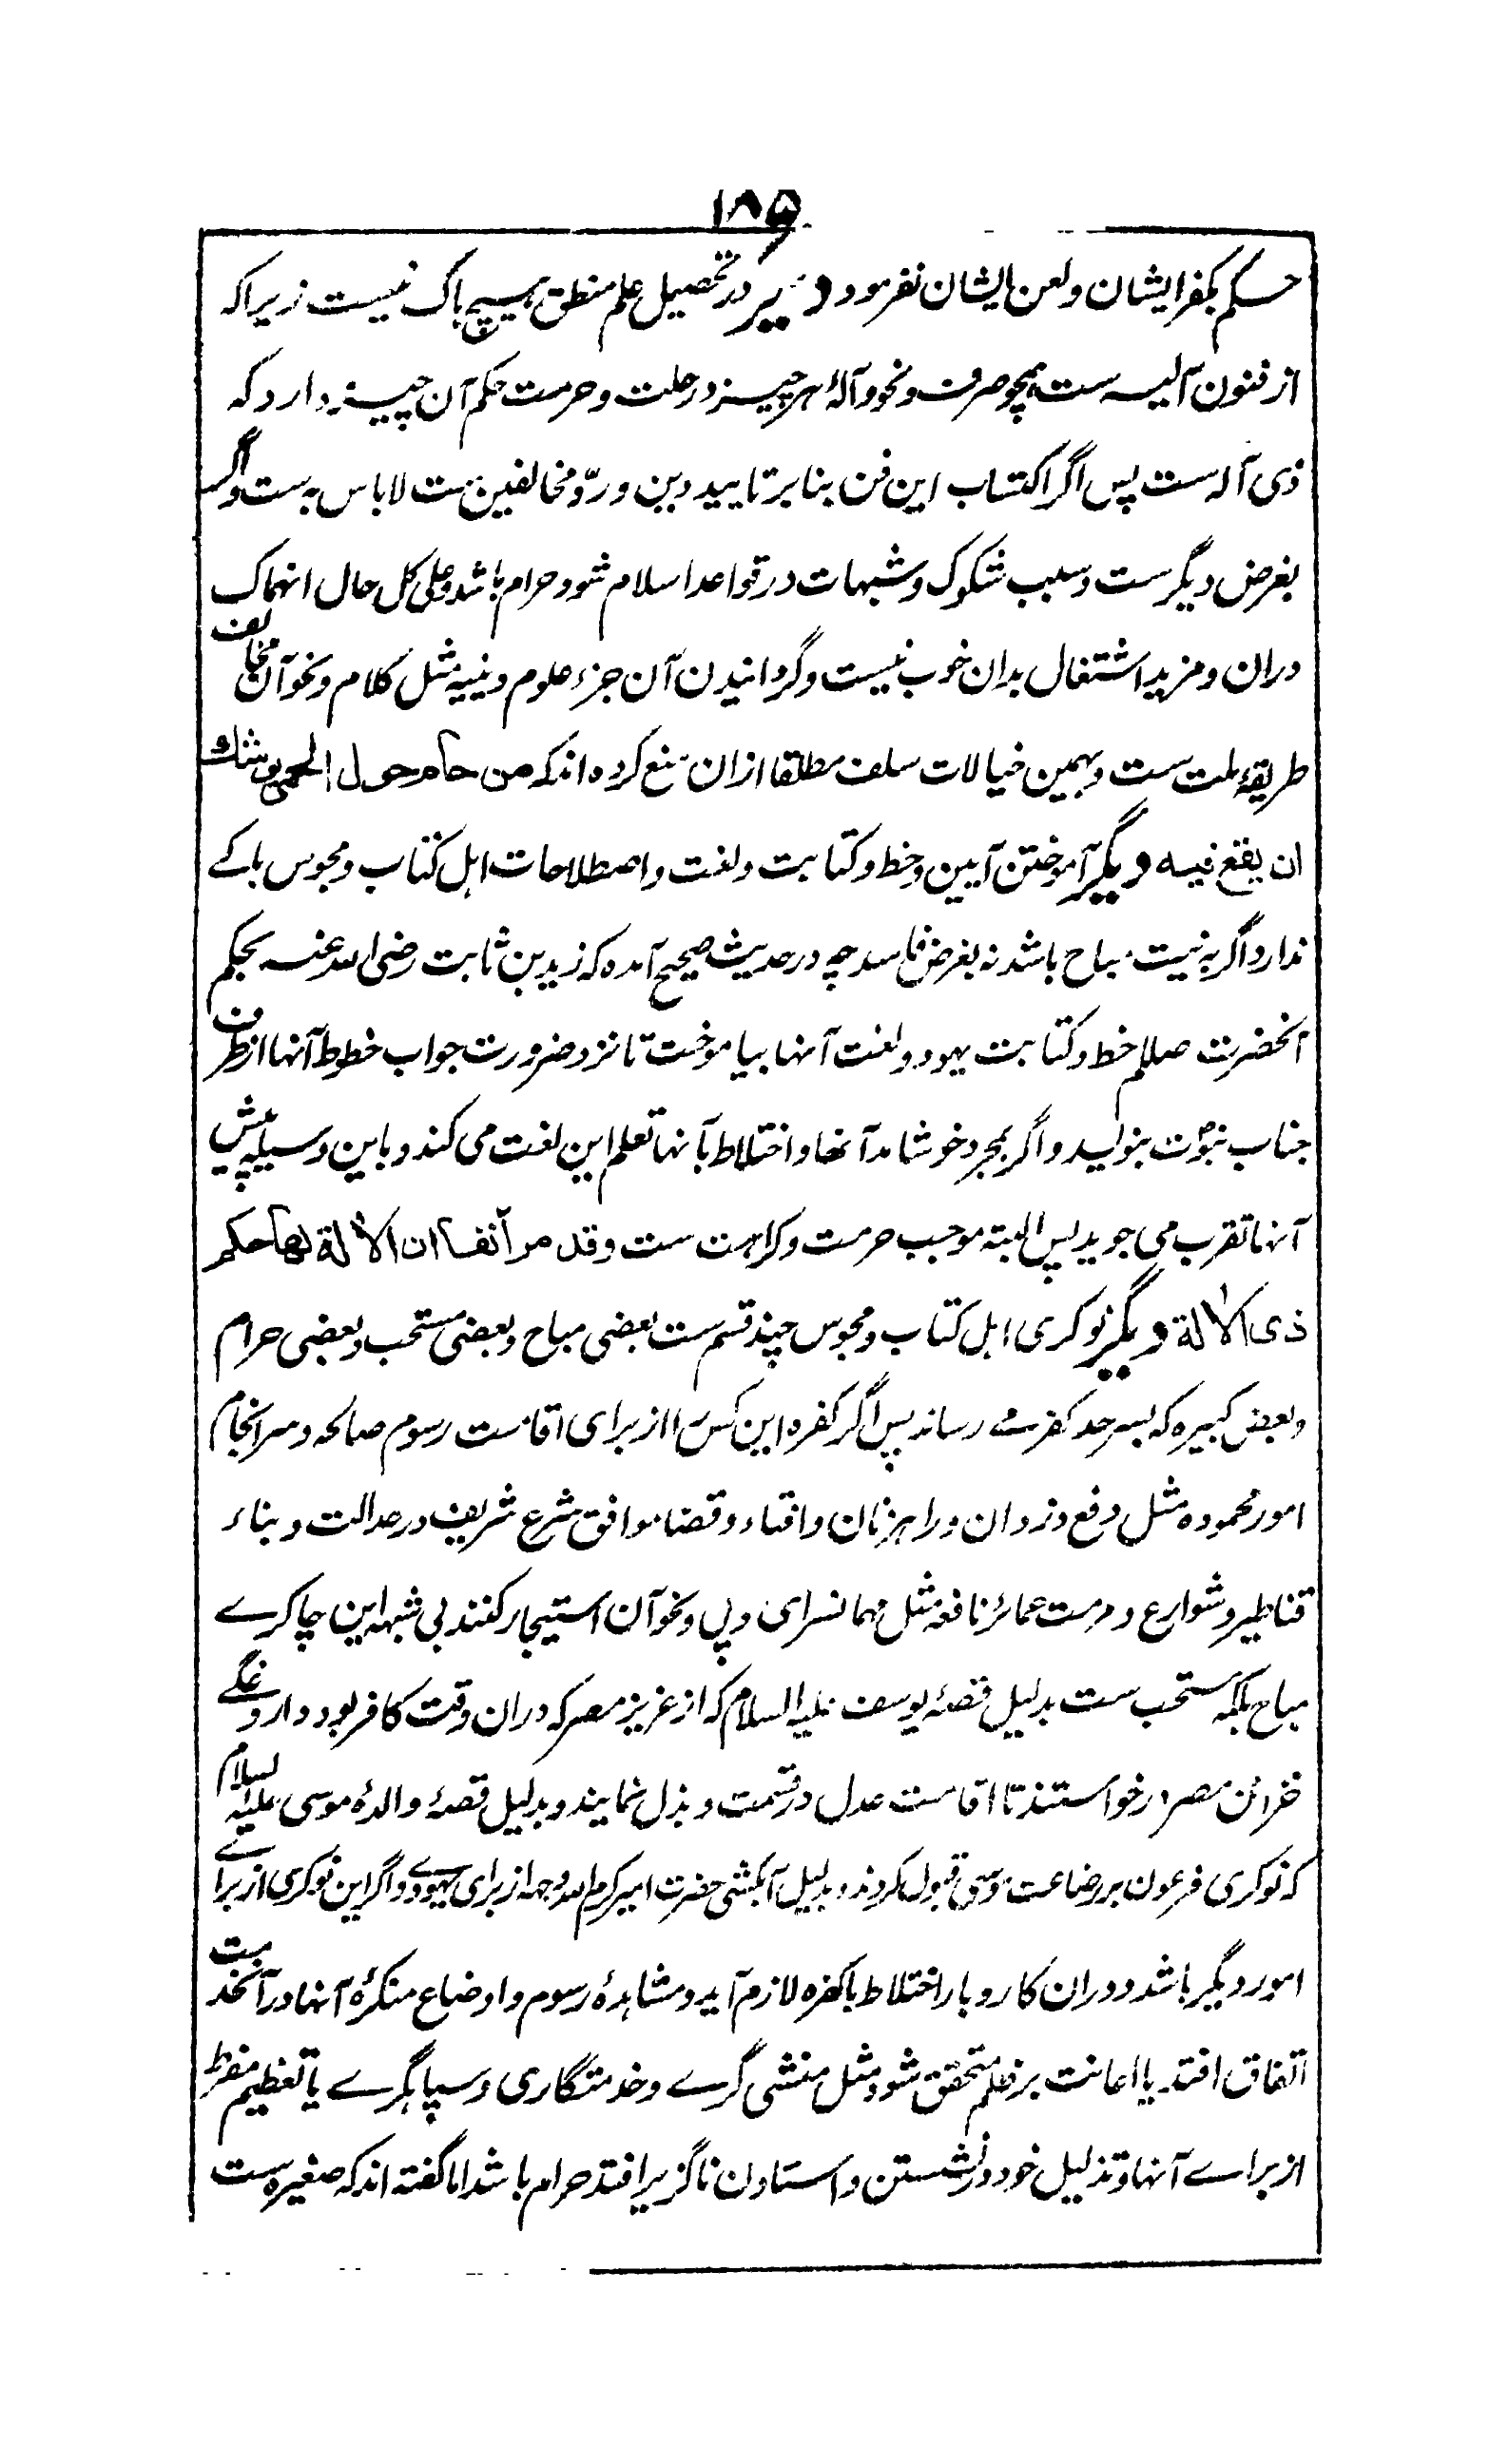 ۱۸۵
حکم بکفر ایشان و لعن ایشان نفرمود دیگر در تحصیل علم منطق ہیچ باک نیست زیرا کہ
از فنون آلیہ ست ہمچو صرف و نحو و آلۂ ہر چیز در حلت و حرمت حکم آن چیز دارد کہ
ذی آلہ ست پس اگر اکتساب این فن بنا بر تایید دین و ردّ مخالفین ست لا باس بہ ست و اگر
بغرض دیگر ست و سبب شکوک و شبہات در قواعد اسلام شود حرام باشد و علی کل حال انہماک
دران و مزید اشتغال بدان خوب نیست و گردانیدن آن جزء علوم دینیہ مثل کلام و نحو آن مخالف
طریقۂ ملت ست و بہمین خیالات سلف مطلقا ازان منع کردہ اند کہ من حام حول الحمی یوشک
ان یقع فیہ دیگر آموختن آیین و خط و کتابت و لغت و اصطلاحات اہل کتاب و مجوس باکے
ندارد اگر بہ نیت مباح باشد نہ بغرض فاسد چہ در حدیث صحیح آمدہ کہ زید بن ثابت رضی اللہ عنہ بحکم
آنحضرت صللم خط و کتابت یہود و لغت آنہا بیاموخت تا نزد ضرورت جواب خطوط آنہا از طرف
جناب نبوّت بنویسد و اگر بمجرد خوشامد آنها و اختلاط بآنہا تعلم این لغت می کند و باین وسیلہ پیش
آنہا تقرب می جوید پس البتہ موجب حرمت و کراہت ست و قد مر آنفا ان الآلة لها حکم
ذی الآلة دیگر نوکری اہل کتاب و مجوس چند قسم ست بعضی مباح و بعضی مستحب و بعضی حرام
و بعض کبیرہ کہ بسرحد کفر مے رساند پس اگر کفرہ این کس را از برای اقامت رسوم صالحہ و سرانجام
امور محمودہ مثل دفع دزدان و راہزنان و افتاء و قضا موافق شرع شریف در عدالت و بناء
قناطیر و شوارع و مرمت عمائر نافعہ مثل مہمانسرای و پل و نحو آن استیجار کنند بی شبہہ این چاکرے
مباح بلکہ مستحب ست بدلیل قصۂ یوسف علیہ السلام کہ از عزیز مصر کہ دران وقت کافر بود داروغگے
خزائن مصر درخواستند تا اقامت عدل در قسمت و بذل نمایند و بدلیل قصۂ والدۂ موسی علیہ السلام
کہ نوکری فرعون بر رضاعت موسی قبول کردند و بدلیل آبکشی حضرت امیر کرم اللہ وجہہ از برای یہودے و اگر این نوکری از براے
امور دیگر باشد و دران کاروبار اختلاط با کفرہ لازم آید و مشاہدۂ رسوم و اوضاع منکرۂ آنہا در آنخدمت
اتفاق افتد یا اعانت بر ظلم متحقق شود مثل منشی گرے و خدمتگاری و سپاہگرے یا تعظیم مفرط
از براے آنہا و تذلیل خود در نشستن و استادن ناگزیر افتد حرام باشد اما گفتہ اند کہ صغیرہ ست